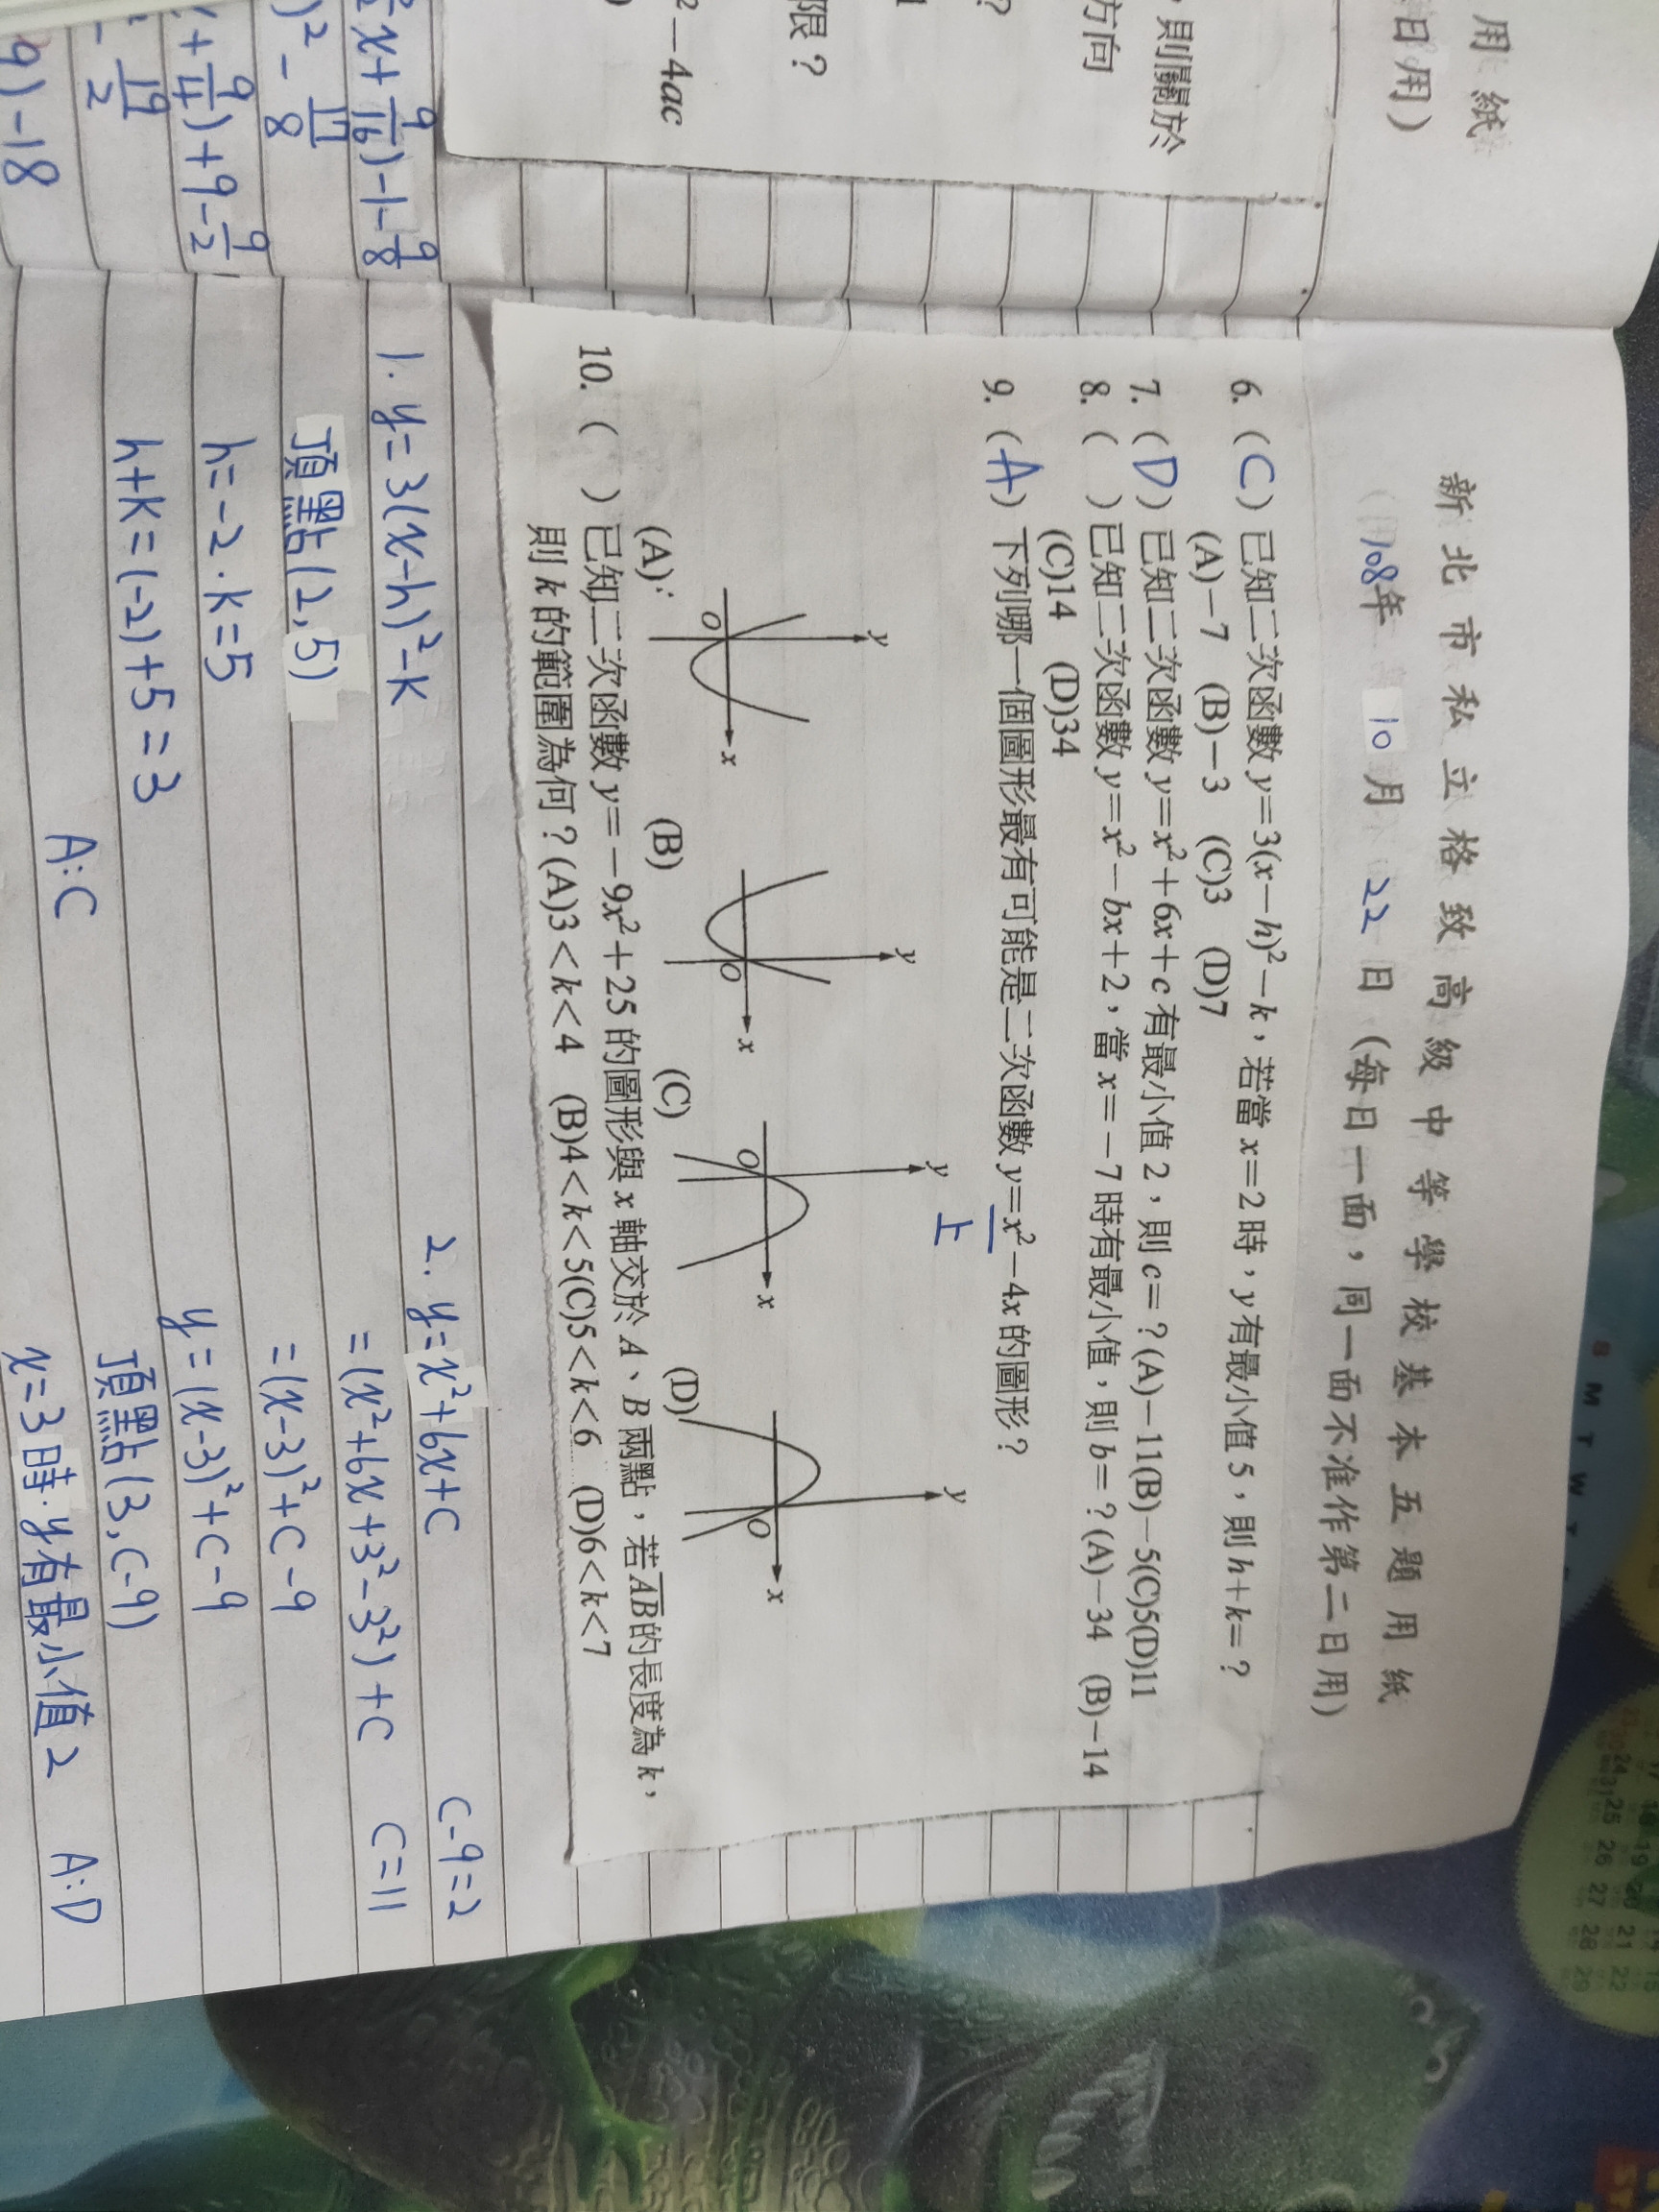 用紙
日用)
,則關於
方向
?
限?
²-4ac
x+9/16)-1-9/8
)²-17/8
+9/4)+9-9/2
-19/2
9)-18
新北市私立格致高級中等學校基本五題用紙
108年10月22日(每日一面,同一面不准作第二日用)
6. (C) 已知二次函數 y=3(x-h)²-k,若當 x=2 時,y 有最小值 5,則 h+k=?
(A)-7 (B)-3 (C)3 (D)7
7. (D) 已知二次函數 y=x²+6x+c 有最小值 2,則 c=?(A)-11(B)-5(C)5(D)11
8. ( ) 已知二次函數 y=x²-bx+2,當 x=-7 時有最小值,則 b=?(A)-34 (B)-14
(C)14 (D)34
9. (A) 下列哪一個圖形最有可能是二次函數 y=x²-4x 的圖形?
上
(A) y O x (B) y O x (C) y O x (D) y O x
10. ( ) 已知二次函數 y=-9x²+25 的圖形與 x 軸交於 A、B 兩點,若AB的長度為 k,
則 k 的範圍為何?(A)3<k<4 (B)4<k<5(C)5<k<6 (D)6<k<7
1. y=3(x-h)²-k
頂點(2,5)
h=-2.k=5
h+k=(-2)+5=3
A:C
2. y=x²+6x+c
=(x²+6x+3²-3²)+c
=(x-3)²+c-9
y=(x-3)²+c-9
頂點(3,c-9)
x=3時.y有最小值2
c-9=2
c=11
A:D
S M T W T